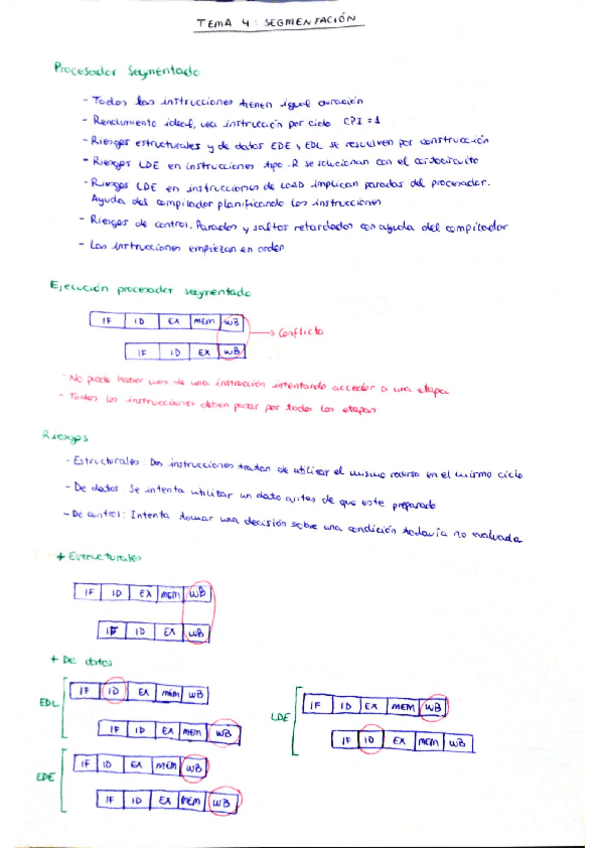 TEMA 4: SEGMENTACIÓN
Procesador Segmentado
- Todas las instrucciones tienen igual duración
- Rendimiento ideal, una instrucción por ciclo CPI = 1
- Riesgos estructurales y de datos EDE y EDL se resuelven por construcción
- Riesgos LDE en instrucciones tipo-R se solucionan con el cortocircuito
- Riesgos LDE en instrucciones de LOAD implican paradas del procesador.
Ayuda del compilador planificando las instrucciones
- Riesgos de control. Paradas y saltos retardados con ayuda del compilador
- Las instrucciones empiezan en orden
Ejecución procesador segmentado
IF ID EX MEM WB
Conflicto
IF ID EX WB
- No puede haber de una instrucción intentando acceder a una etapa
- Todas las instrucciones deben pasar por todas las etapas
Riesgos
- Estructurales: Dos instrucciones tratan de utilizar el mismo recurso en el mismo ciclo
- De datos: Se intenta utilizar un dato antes de que este preparado
- De control: Intenta tomar una decisión sobre una condición todavía no evaluada
+ Estructurales
IF ID EX MEM WB
IF ID EX WB
+ De datos
EDL
IF ID EX MEM WB
IF ID EX MEM WB
LDE
IF ID EX MEM WB
IF ID EX MEM WB
EDE
IF ID EX MEM WB
IF ID EX MEM WB